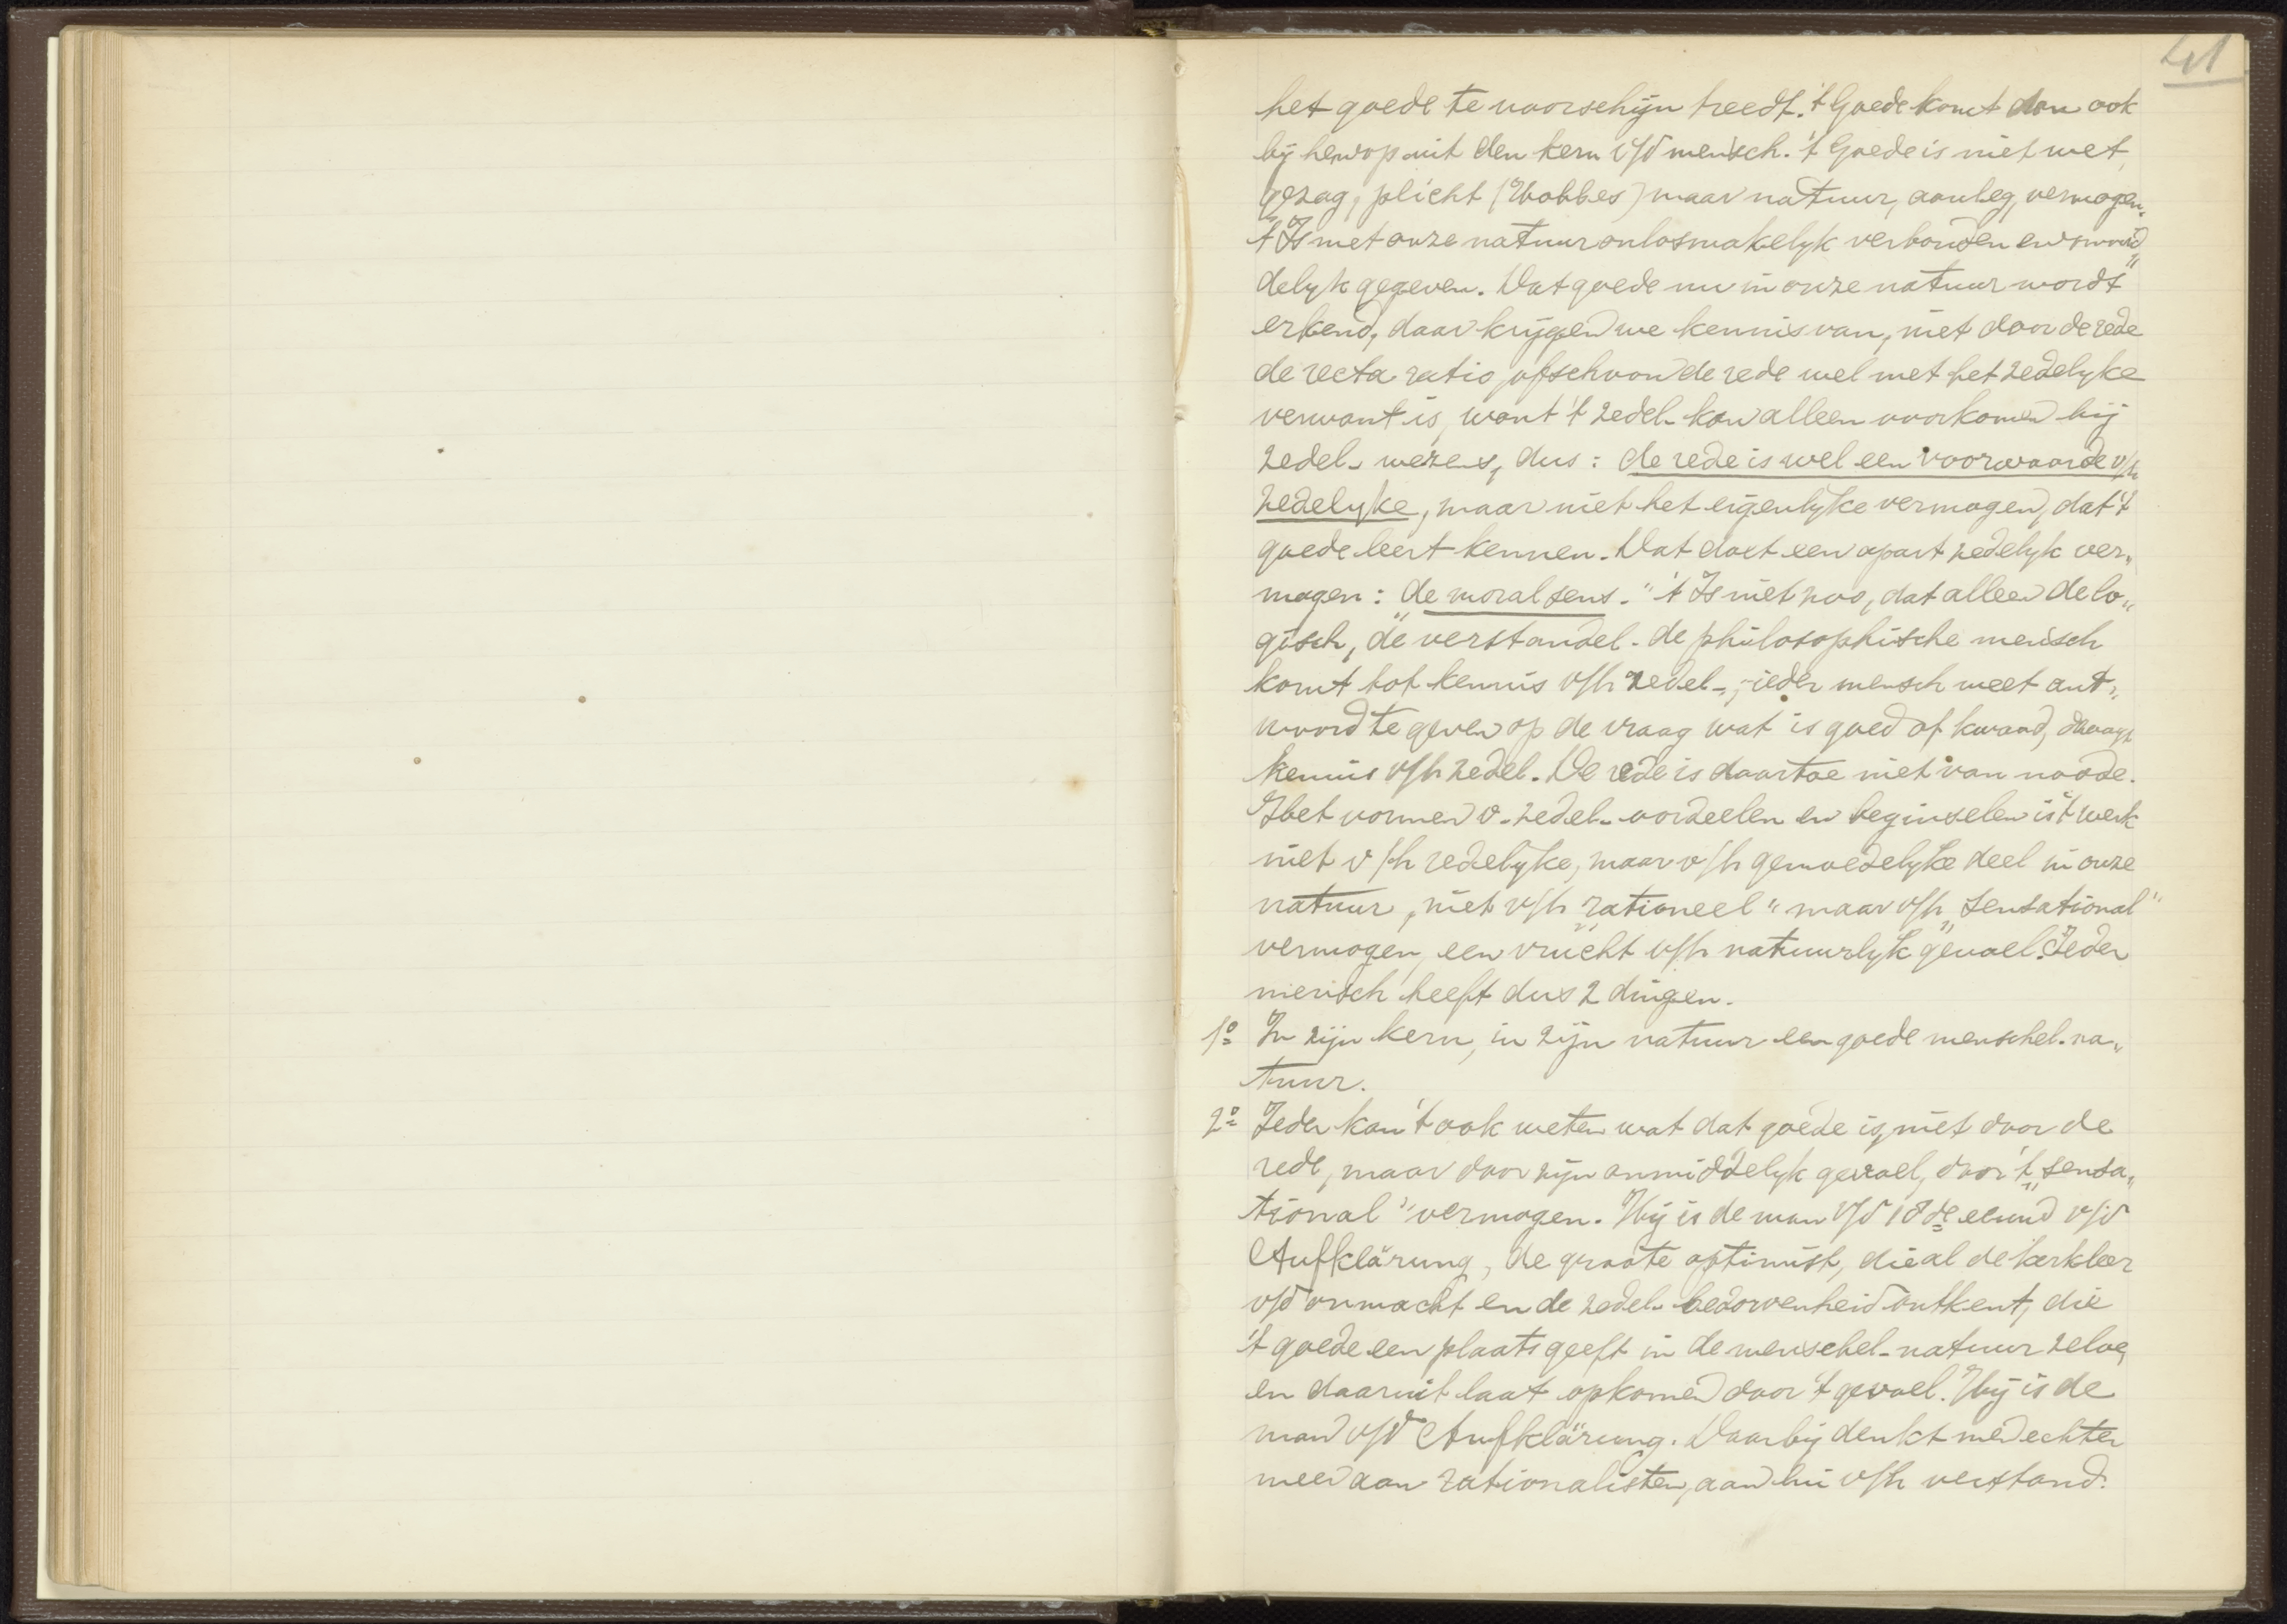 41
het goede te voorschijn treedt. 't Goede komt dan ook
bij hem op uit den kern v/d mensch. 't Goede is niet wet,
gezag, plicht (Hobbes) maar natuur, aanleg, vermogen.
't Is met onze natuur onlosmakelyk verbonden en
delyk gegeven. Dat goede nu in onze natuur wordt
erkend, daar krijgen we kennis van, niet door de rede
de recta ratio, ofschoon de rede wel met het zedelyke
verwant is, want 't zedel. kan alleen voorkomen bij
zedel. wezens, dus: de rede is wel een voorwaarde v/h
zedelyke, maar niet het eigenlyke vermogen, dat 't
goede leert kennen. Dat doet een apart zedelyk ver„
mogen: „de moral sens." 't Is niet zoo, dat alleen de lo„
gisch, de verstandel. de philosophische mensch
komt tot kennis v/h zedel., ieder mensch weet ant„
woord te geven op de vraag wat is goed of kwaad, draagt
kennis v/h zedel. De rede is daartoe niet van noode.
Het vormen v. zedel. oordeelen en beginselen is 't werk
niet v/h redelijke, maar v/h gemoedelyke deel in onze
natuur, niet v/h „rationeel" maar v/h „sensational"
vermogen, een vrucht v/h natuurlyk gevoel. Ieder
mensch heeft dus 2 dingen.
1º In zijn kern, in zijn natuur een goede menschel. na„
tuur.
2º Ieder kan 't ook weten wat dat goede is, niet door de
rede, maar door zijn onmiddelyk gevoel, door 't „sensa„
tional" vermogen. Hij is de man v/d 18de eeuw v/d
Aufklärung, de groote optimist, die al de kerkleer
v/d onmacht en de zedel. bedorvenheid ontkent, die
't goede een plaats geeft in de menschel. natuur zelve,
en daaruit laat opkomen door 't gevoel. Hij is de
man v/d Aufklärung. Daarbij denkt men echter
meer aan rationalisten, aan lui v/h verstand.